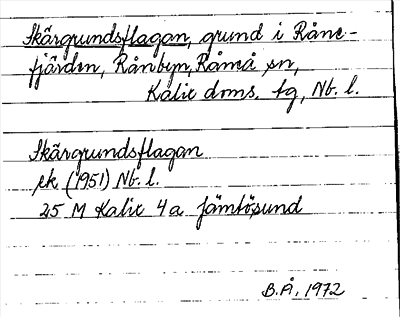 Skärgrundsflagan, grund i Råne-
fjärden, Rånbyn, Råneå sn,
Kalix doms. tg, Nb. l.
Skärgrundsflagan
ek (1951) Nb. l.
25 M Kalix 4a Jämtösund
B.Å, 1972